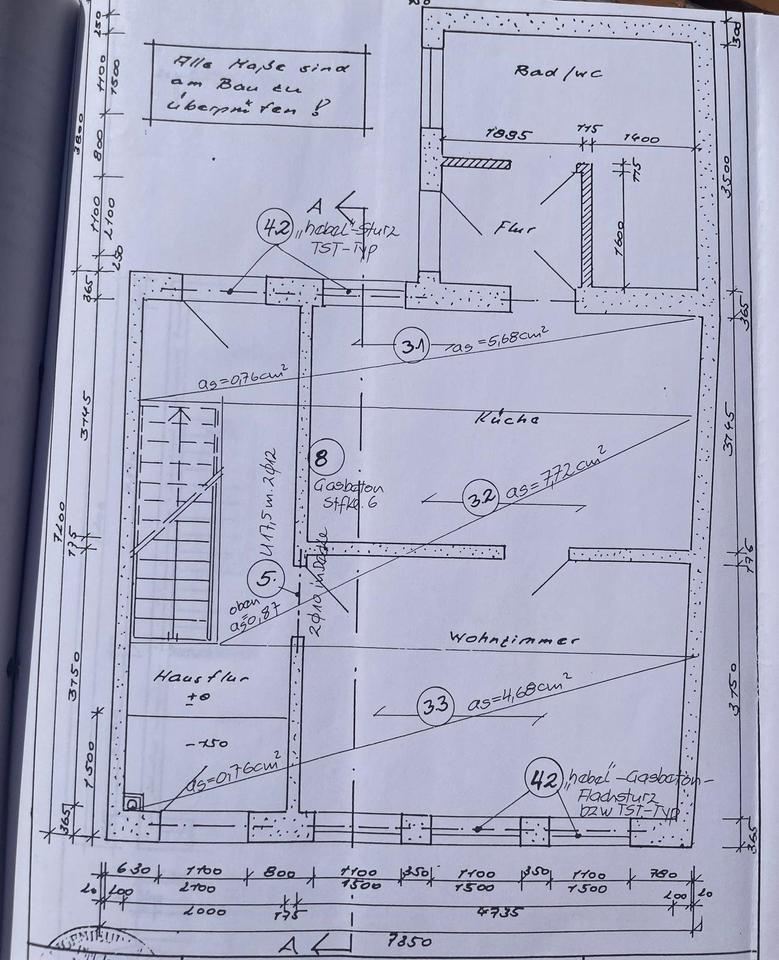 Alle Maße sind
am Bau zu
überprüfen !
Bad/WC
1885
115
1400
115
1600
Flur
A
42
"hebel"-Sturz
TST-Typ
31
as=5,68cm²
as=0,76cm²
Küche
8
Gasbeton
Stfkl. 6
32
as=7,72cm²
U 17,5 m. 2ϕ12
5.
2ϕ10 in Decke
oben
as=0,87
Wohnzimmer
Hausflur
±0
-150
33
as=4,68cm²
as=0,76cm²
42
"hebel"-Gasbeton-
Flachsturz
bzw TST-Typ
250
1100
1500
3800
800
1100
2100
250
365
3745
7200
175
3750
1500
365
300
3500
365
3745
175
3750
365
630
1100
800
1100
350
1100
350
1100
780
20
200
2100
1500
1500
1500
200
20
2000
175
4735
7350
A